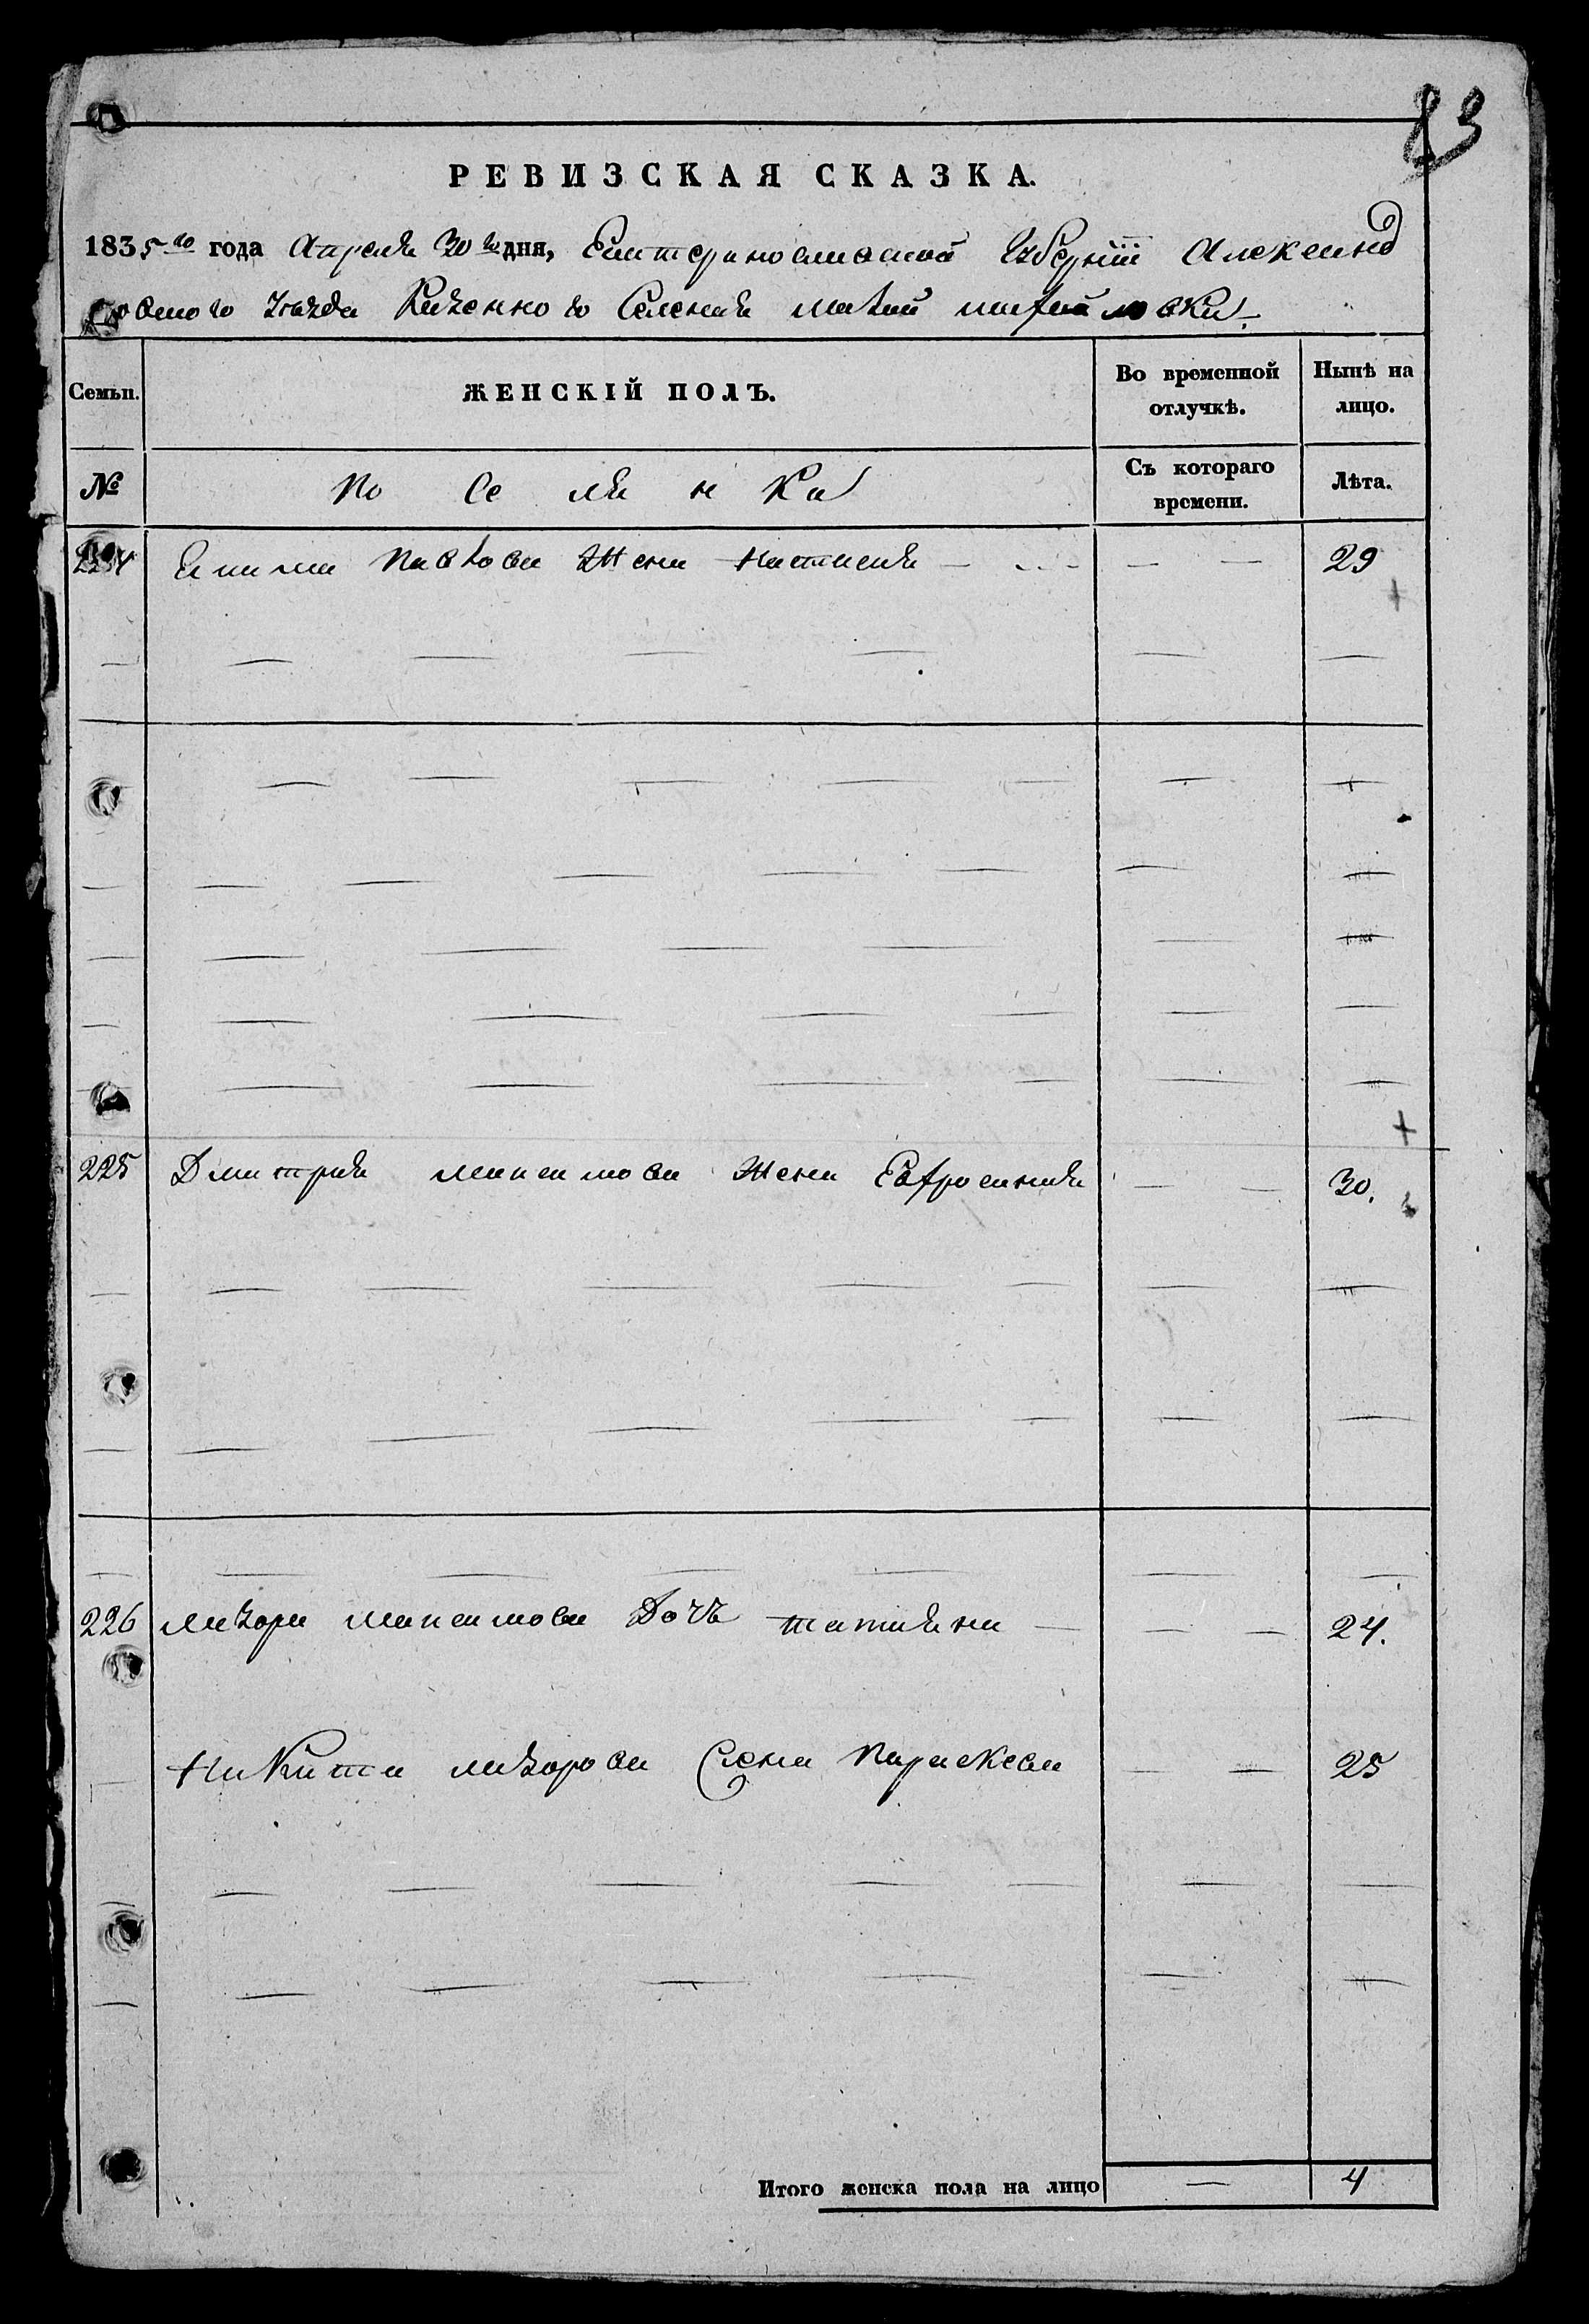 83
РЕВИЗСКАЯ СКАЗКА.
1835го года Апреля 30 го дня, Екатеринославской Губернiи Александ
ровского Уезда Казенного Селения малой михайловки
Семьи.
ЖЕНСКIЙ ПОЛЪ.
Во временной отлучкѣ.
Нынѣ на лицо.
№
Поселянка
Съ котораго времени.
Лѣта.
224 Павлова Жена Настасия — — — 29
225 Дмитрия Максимова Жена Евфросиния — — 30.
226 Лазоря Максимова Дочь татияна — — — 24.
Никита лазорова Жена Параскева — — 25
Итого женска пола на лицо — 4